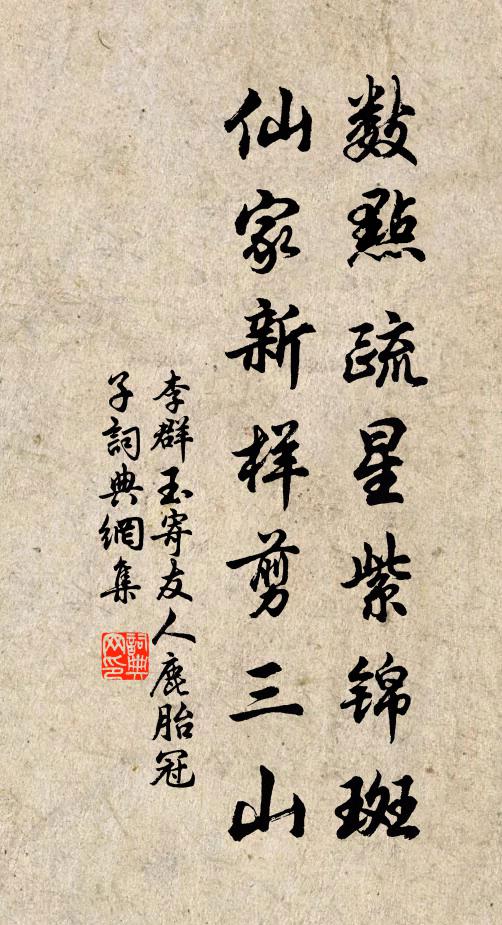 數點疏星紫锦斑
仙家新样剪三山
李群玉寄友人鹿胎冠
子詞典網集
詞典网印